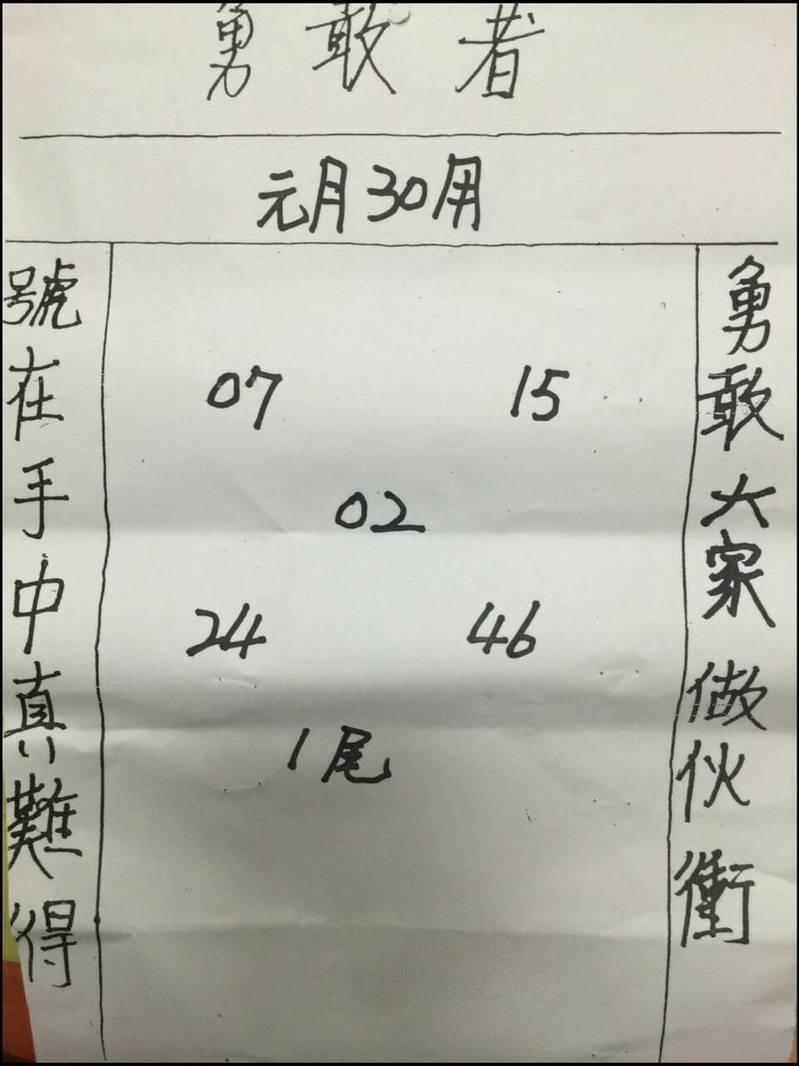 勇敢者
元月30用
勇敢大家做伙衝
07 15
02
24 46
1尾
號在手中真難得